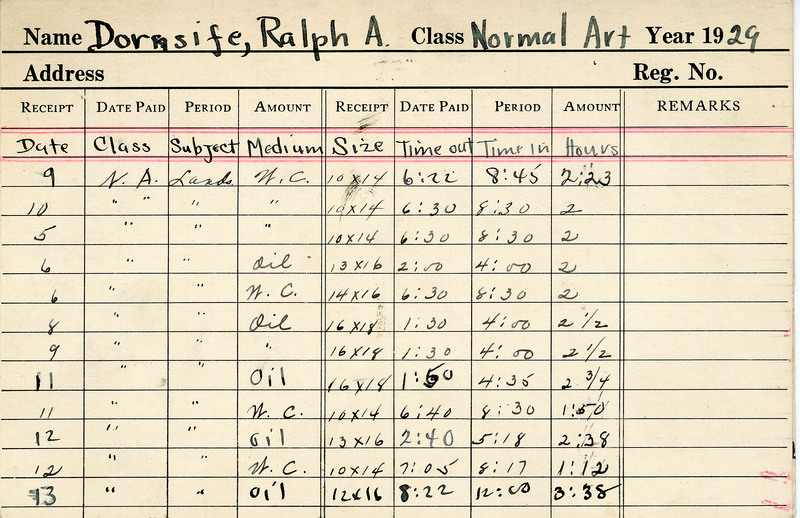 Name Dornsife, Ralph A. Class Normal Art Year 1929
Address Reg. No.
RECEIPT DATE PAID PERIOD AMOUNT RECEIPT DATE PAID PERIOD AMOUNT REMARKS
Date Class Subject Medium Size Time out Time in Hours
9 N. A. Lands. W. C. 10x14 6:22 8:45 2:23
10 " " " " 10x14 6:30 8:30 2
5 " " " 10x14 6:30 8:30 2
6 " " Oil 13x16 2:00 4:00 2
6 " " W. C. 14x16 6:30 8:30 2
8 " " Oil 16x18 1:30 4:00 2 1/2
9 " " " 16x18 1:30 4:00 2 1/2
11 " " Oil 16x18 1:50 4:35 2 3/4
11 " " W. C. 10x14 6:40 8:30 1:50
12 " " Oil 13x16 2:40 5:18 2:38
12 " " W. C. 10x14 7:05 8:17 1:12
13 " " Oil 12x16 8:22 12:00 3:38